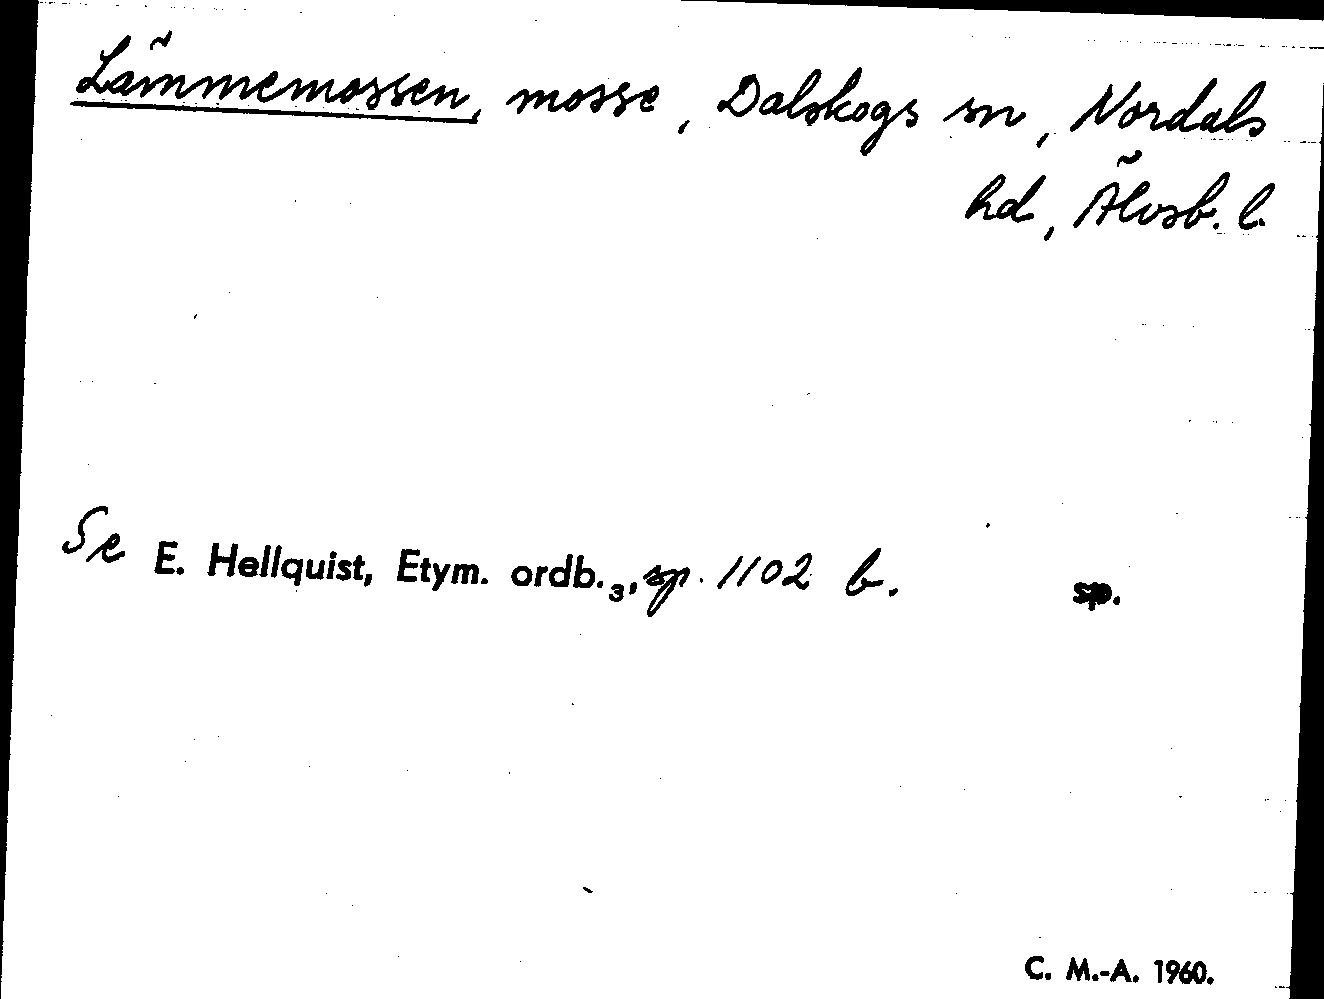 Lämmemossen, mosse, Dalskogs sn, Nordals
hd, Älvsb. l.
Se E. Hellquist, Etym. ordb. 3, sp. 1102 b. sp.
C. M.-A. 1960.